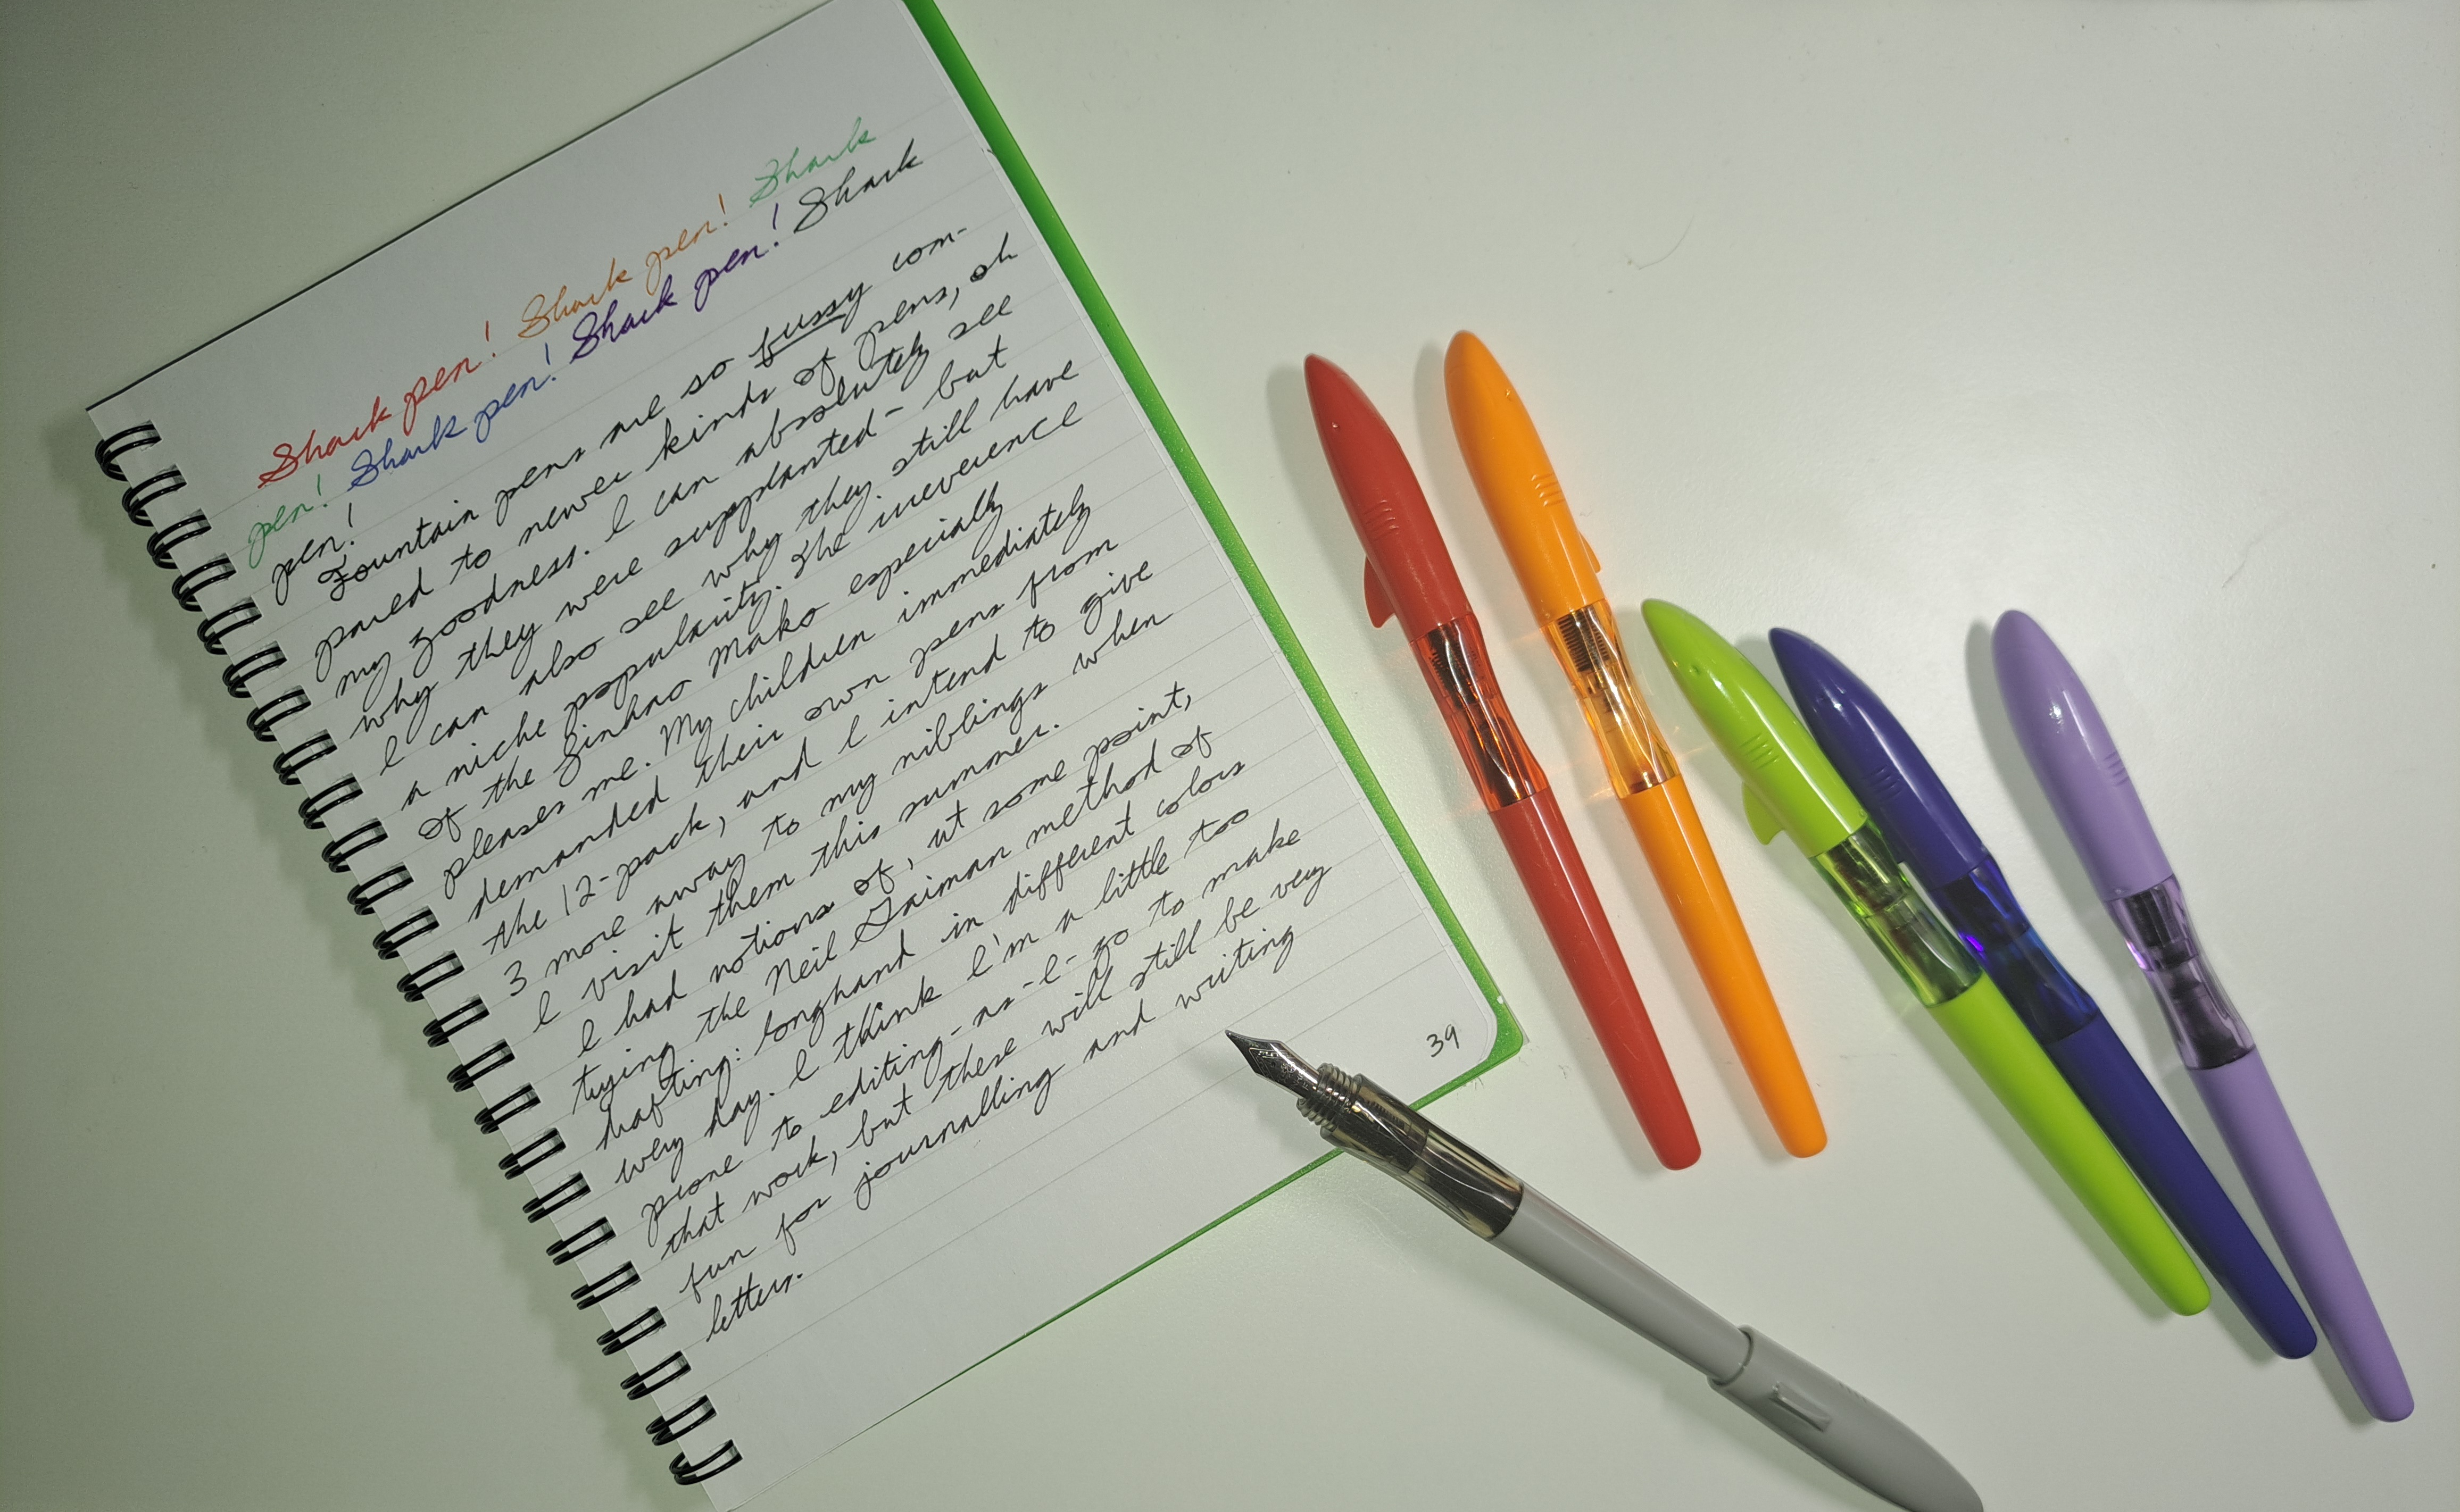 Shark pen! Shark pen! Shark
pen! Shark pen! Shark pen! Shark
pen!
Fountain pens are so fussy com-
pared to newer kinds of pens, oh
my goodness. I can absolutely see
why they were supplanted- but
I can also see why they still have
a niche popularity. The irreverence
of the Jinhao Mako especially
pleases me. My children immediately
demanded their own pens from
the 12-pack, and I intend to give
3 more away to my niblings when
I visit them this summer.
I had notions of, at some point,
trying the Neil Gaiman method of
drafting: longhand in different colors
every day. I think I'm a little too
prone to editing-as-I-go to make
that work, but these will still be very
fun for journalling and writing
letters.
39